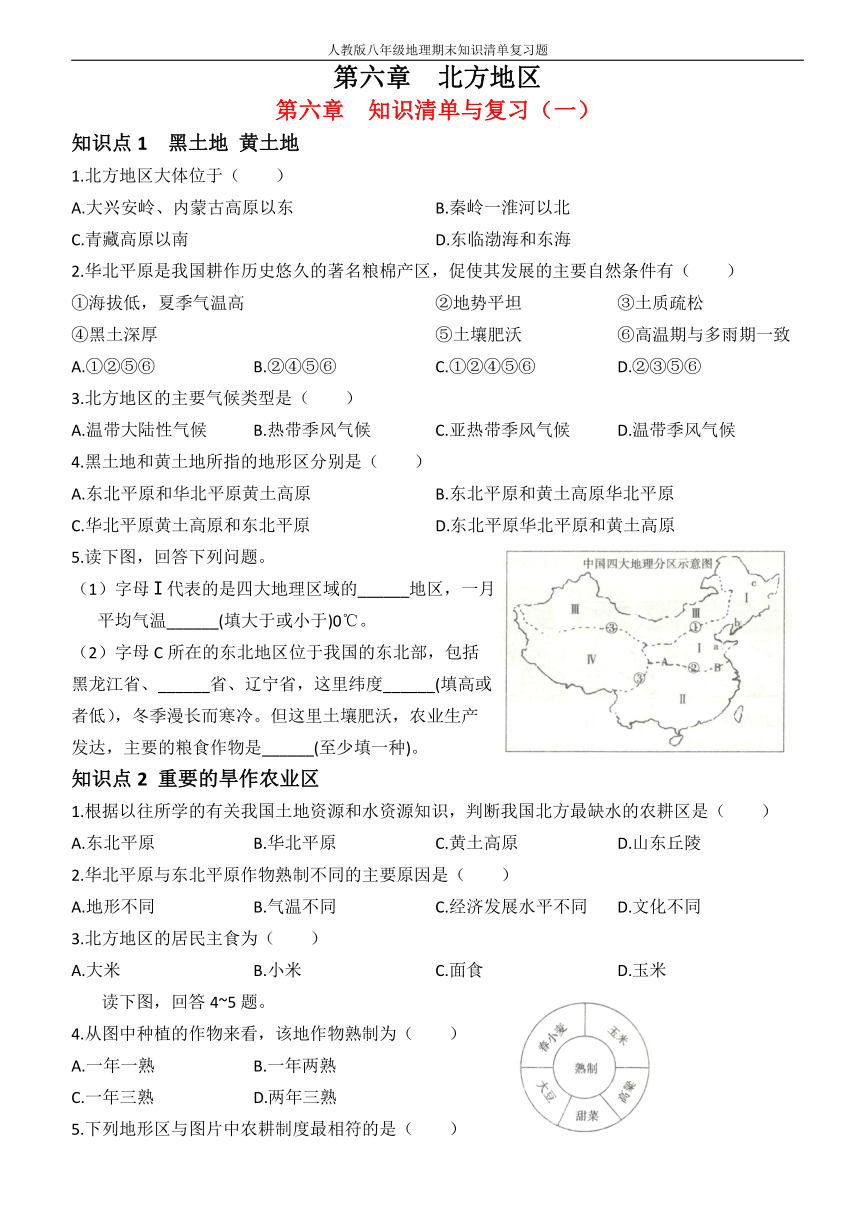 人教版八年级地理期末知识清单复习题
第六章 北方地区
第六章 知识清单与复习（一）
知识点1 黑土地 黄土地
1.北方地区大体位于（ ）
A.大兴安岭、内蒙古高原以东 B.秦岭一淮河以北
C.青藏高原以南 D.东临渤海和东海
2.华北平原是我国耕作历史悠久的著名粮棉产区，促使其发展的主要自然条件有（ ）
①海拔低，夏季气温高 ②地势平坦 ③土质疏松
④黑土深厚 ⑤土壤肥沃 ⑥高温期与多雨期一致
A.①②⑤⑥ B.②④⑤⑥ C.①②④⑤⑥ D.②③⑤⑥
3.北方地区的主要气候类型是（ ）
A.温带大陆性气候 B.热带季风气候 C.亚热带季风气候 D.温带季风气候
4.黑土地和黄土地所指的地形区分别是（ ）
A.东北平原和华北平原黄土高原 B.东北平原和黄土高原华北平原
C.华北平原黄土高原和东北平原 D.东北平原华北平原和黄土高原
5.读下图，回答下列问题。
（1）字母Ⅰ代表的是四大地理区域的______地区，一月
平均气温______(填大于或小于)0℃。
（2）字母C所在的东北地区位于我国的东北部，包括
黑龙江省、______省、辽宁省，这里纬度______(填高或
者低），冬季漫长而寒冷。但这里土壤肥沃，农业生产
发达，主要的粮食作物是______(至少填一种)。
中国四大地理分区示意图
c
Ⅰ
Ⅲ
Ⅲ
①
b
③
Ⅰ
a
Ⅳ
A
②
B
③
Ⅱ
知识点2 重要的旱作农业区
1.根据以往所学的有关我国土地资源和水资源知识，判断我国北方最缺水的农耕区是（ ）
A.东北平原 B.华北平原 C.黄土高原 D.山东丘陵
2.华北平原与东北平原作物熟制不同的主要原因是（ ）
A.地形不同 B.气温不同 C.经济发展水平不同 D.文化不同
3.北方地区的居民主食为（ ）
A.大米 B.小米 C.面食 D.玉米
读下图，回答4~5题。
4.从图中种植的作物来看，该地作物熟制为（ ）
A.一年一熟 B.一年两熟
C.一年三熟 D.两年三熟
5.下列地形区与图片中农耕制度最相符的是（ ）
春小麦
玉米
熟制
大豆
高粱
甜菜